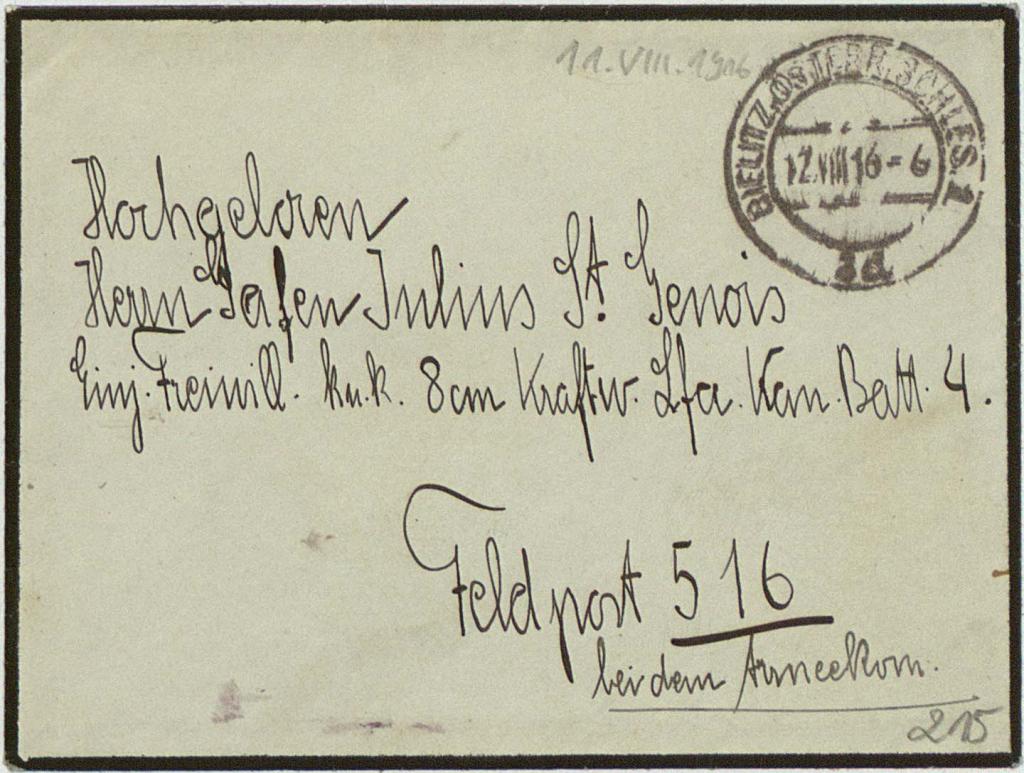 11.VIII.1916
BIELITZ. ÖSTERR. SCHLES. 1
12.VIII 16-6
3d
Hochgeloren
Herrn Grafen Julius St. Genois
Einj. Freiwill. k.u.k. 8cm Kraftw. Lfa. Kan. Batt. 4.
Feldpost 516
bei dem Armeekom.
215